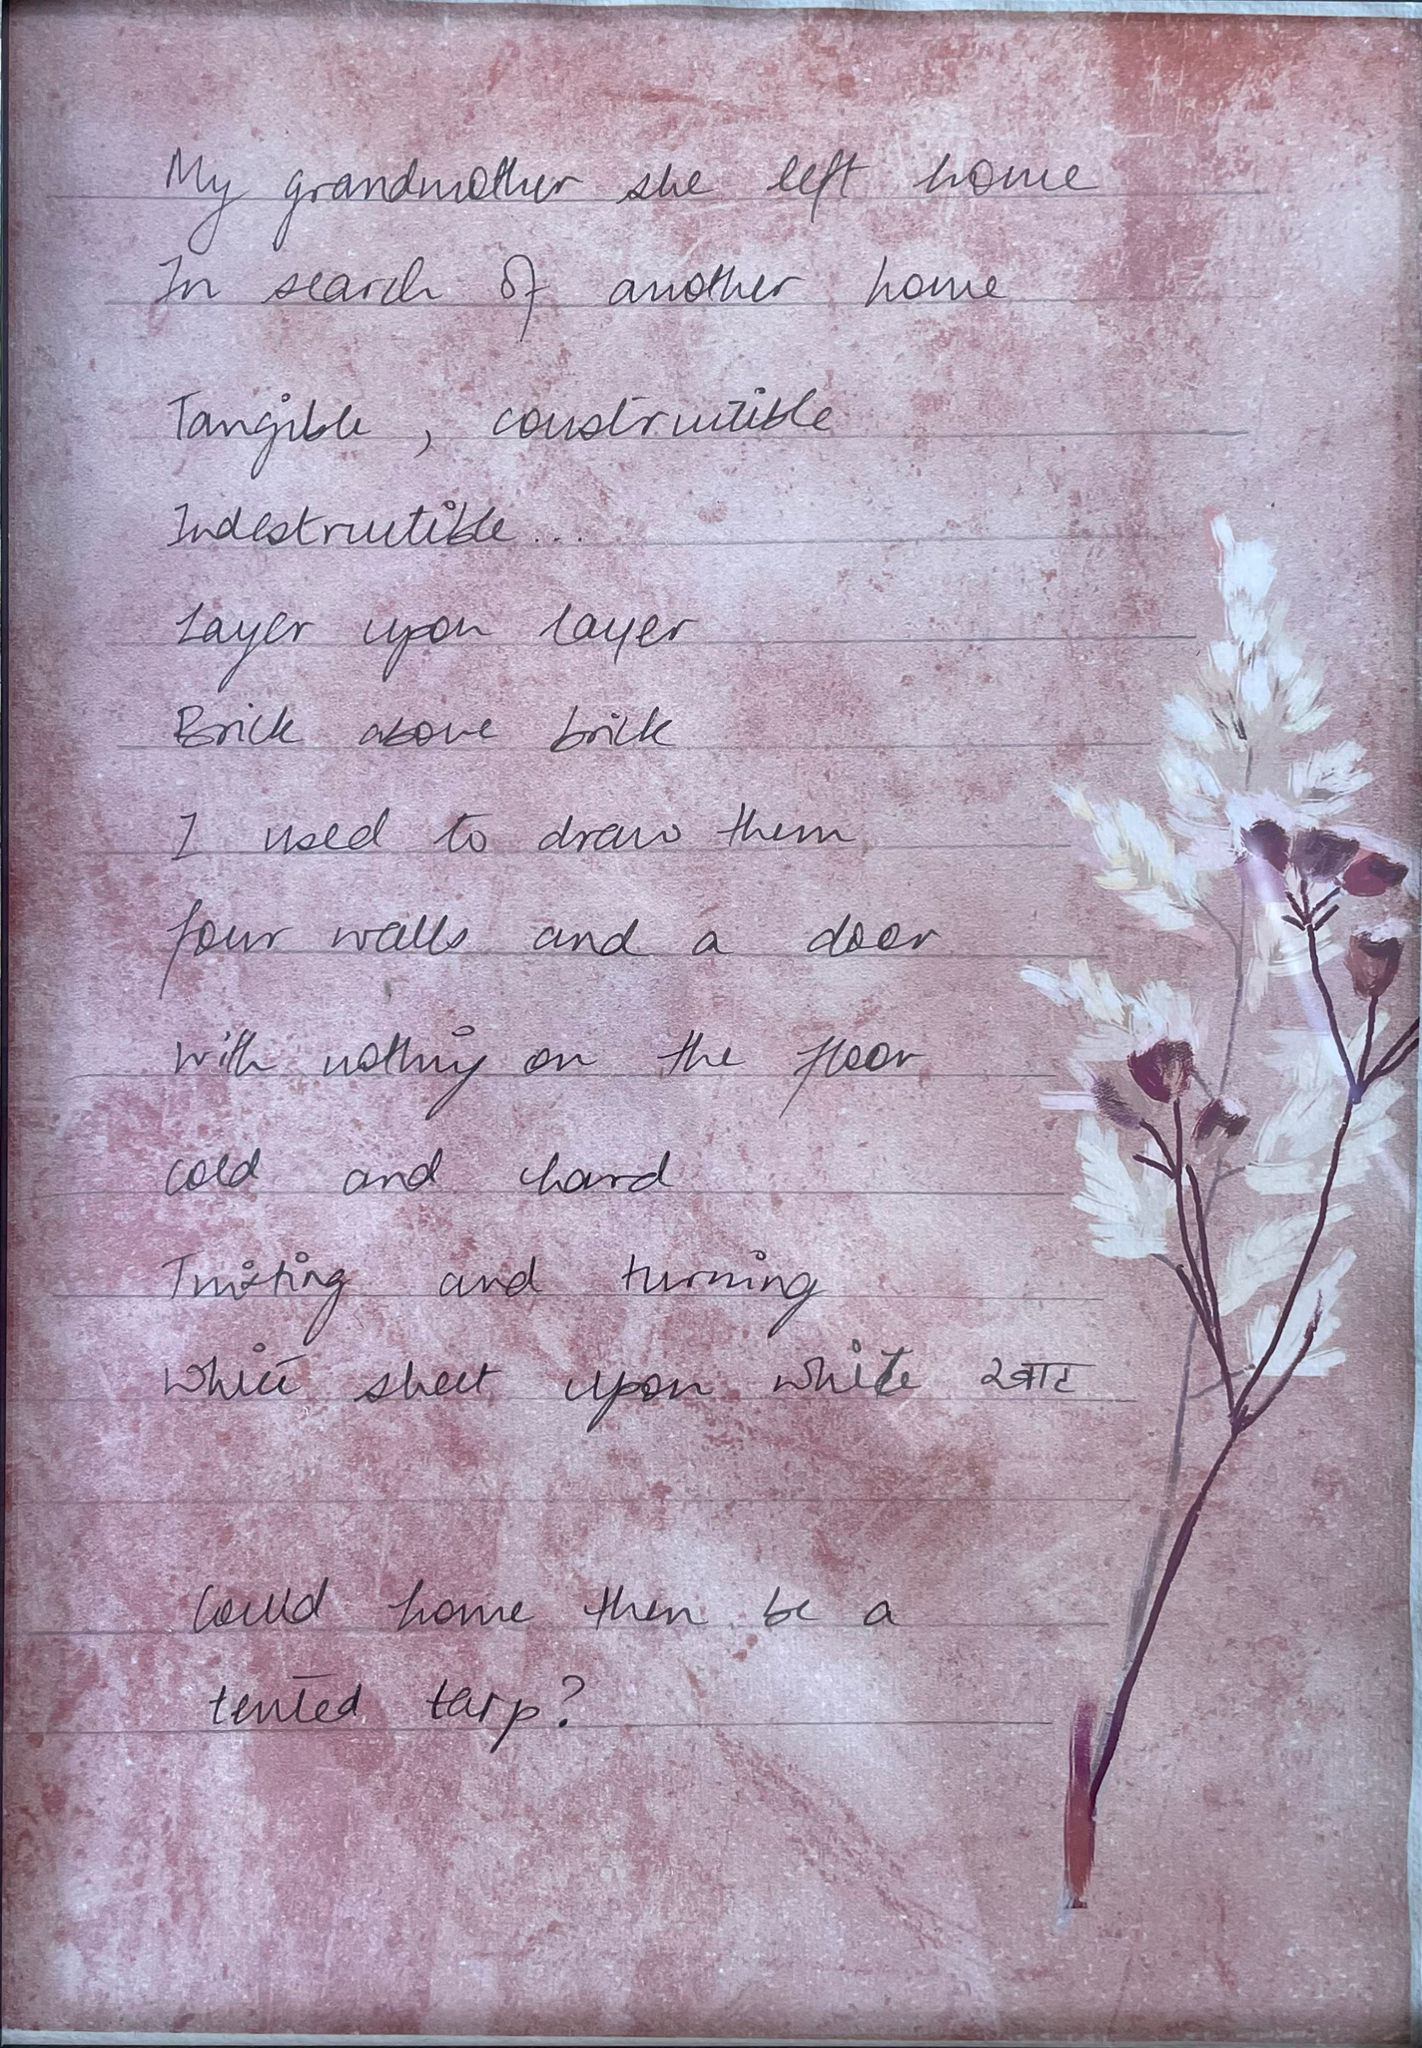 My grandmother she left home
In search of another home
Tangible, constructible
Indestructible...
Layer upon layer
Brick above brick
I used to draw them
four walls and a door
with nothing on the floor
cold and hard
Twisting and turning
White sheet upon white खाट
Could home then be a
tented tarp?